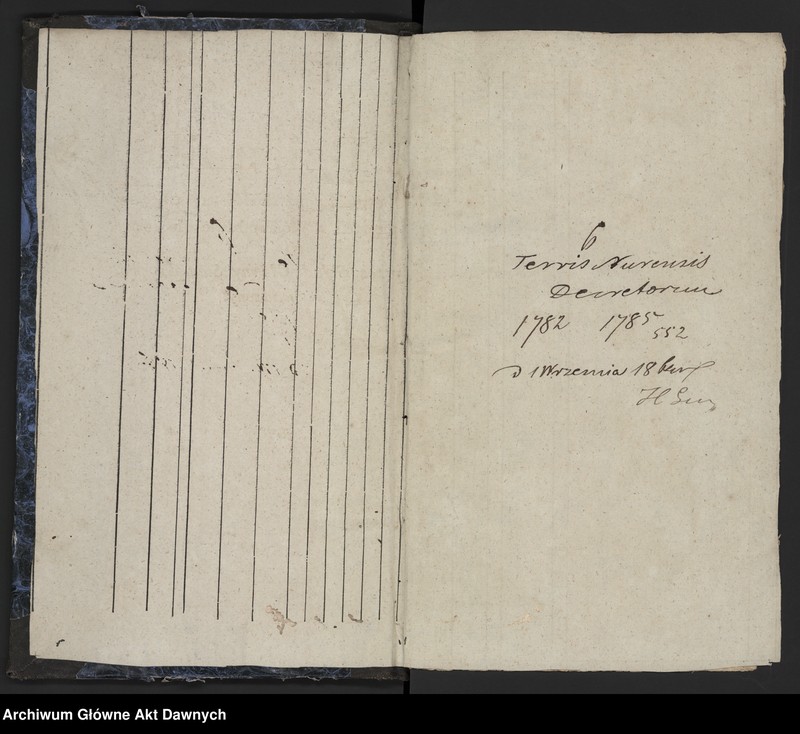 6
Terris Nurensis
Decretorum
1782 1785
552
D 1 Wrzesnia 18
Archiwum Główne Akt Dawnych